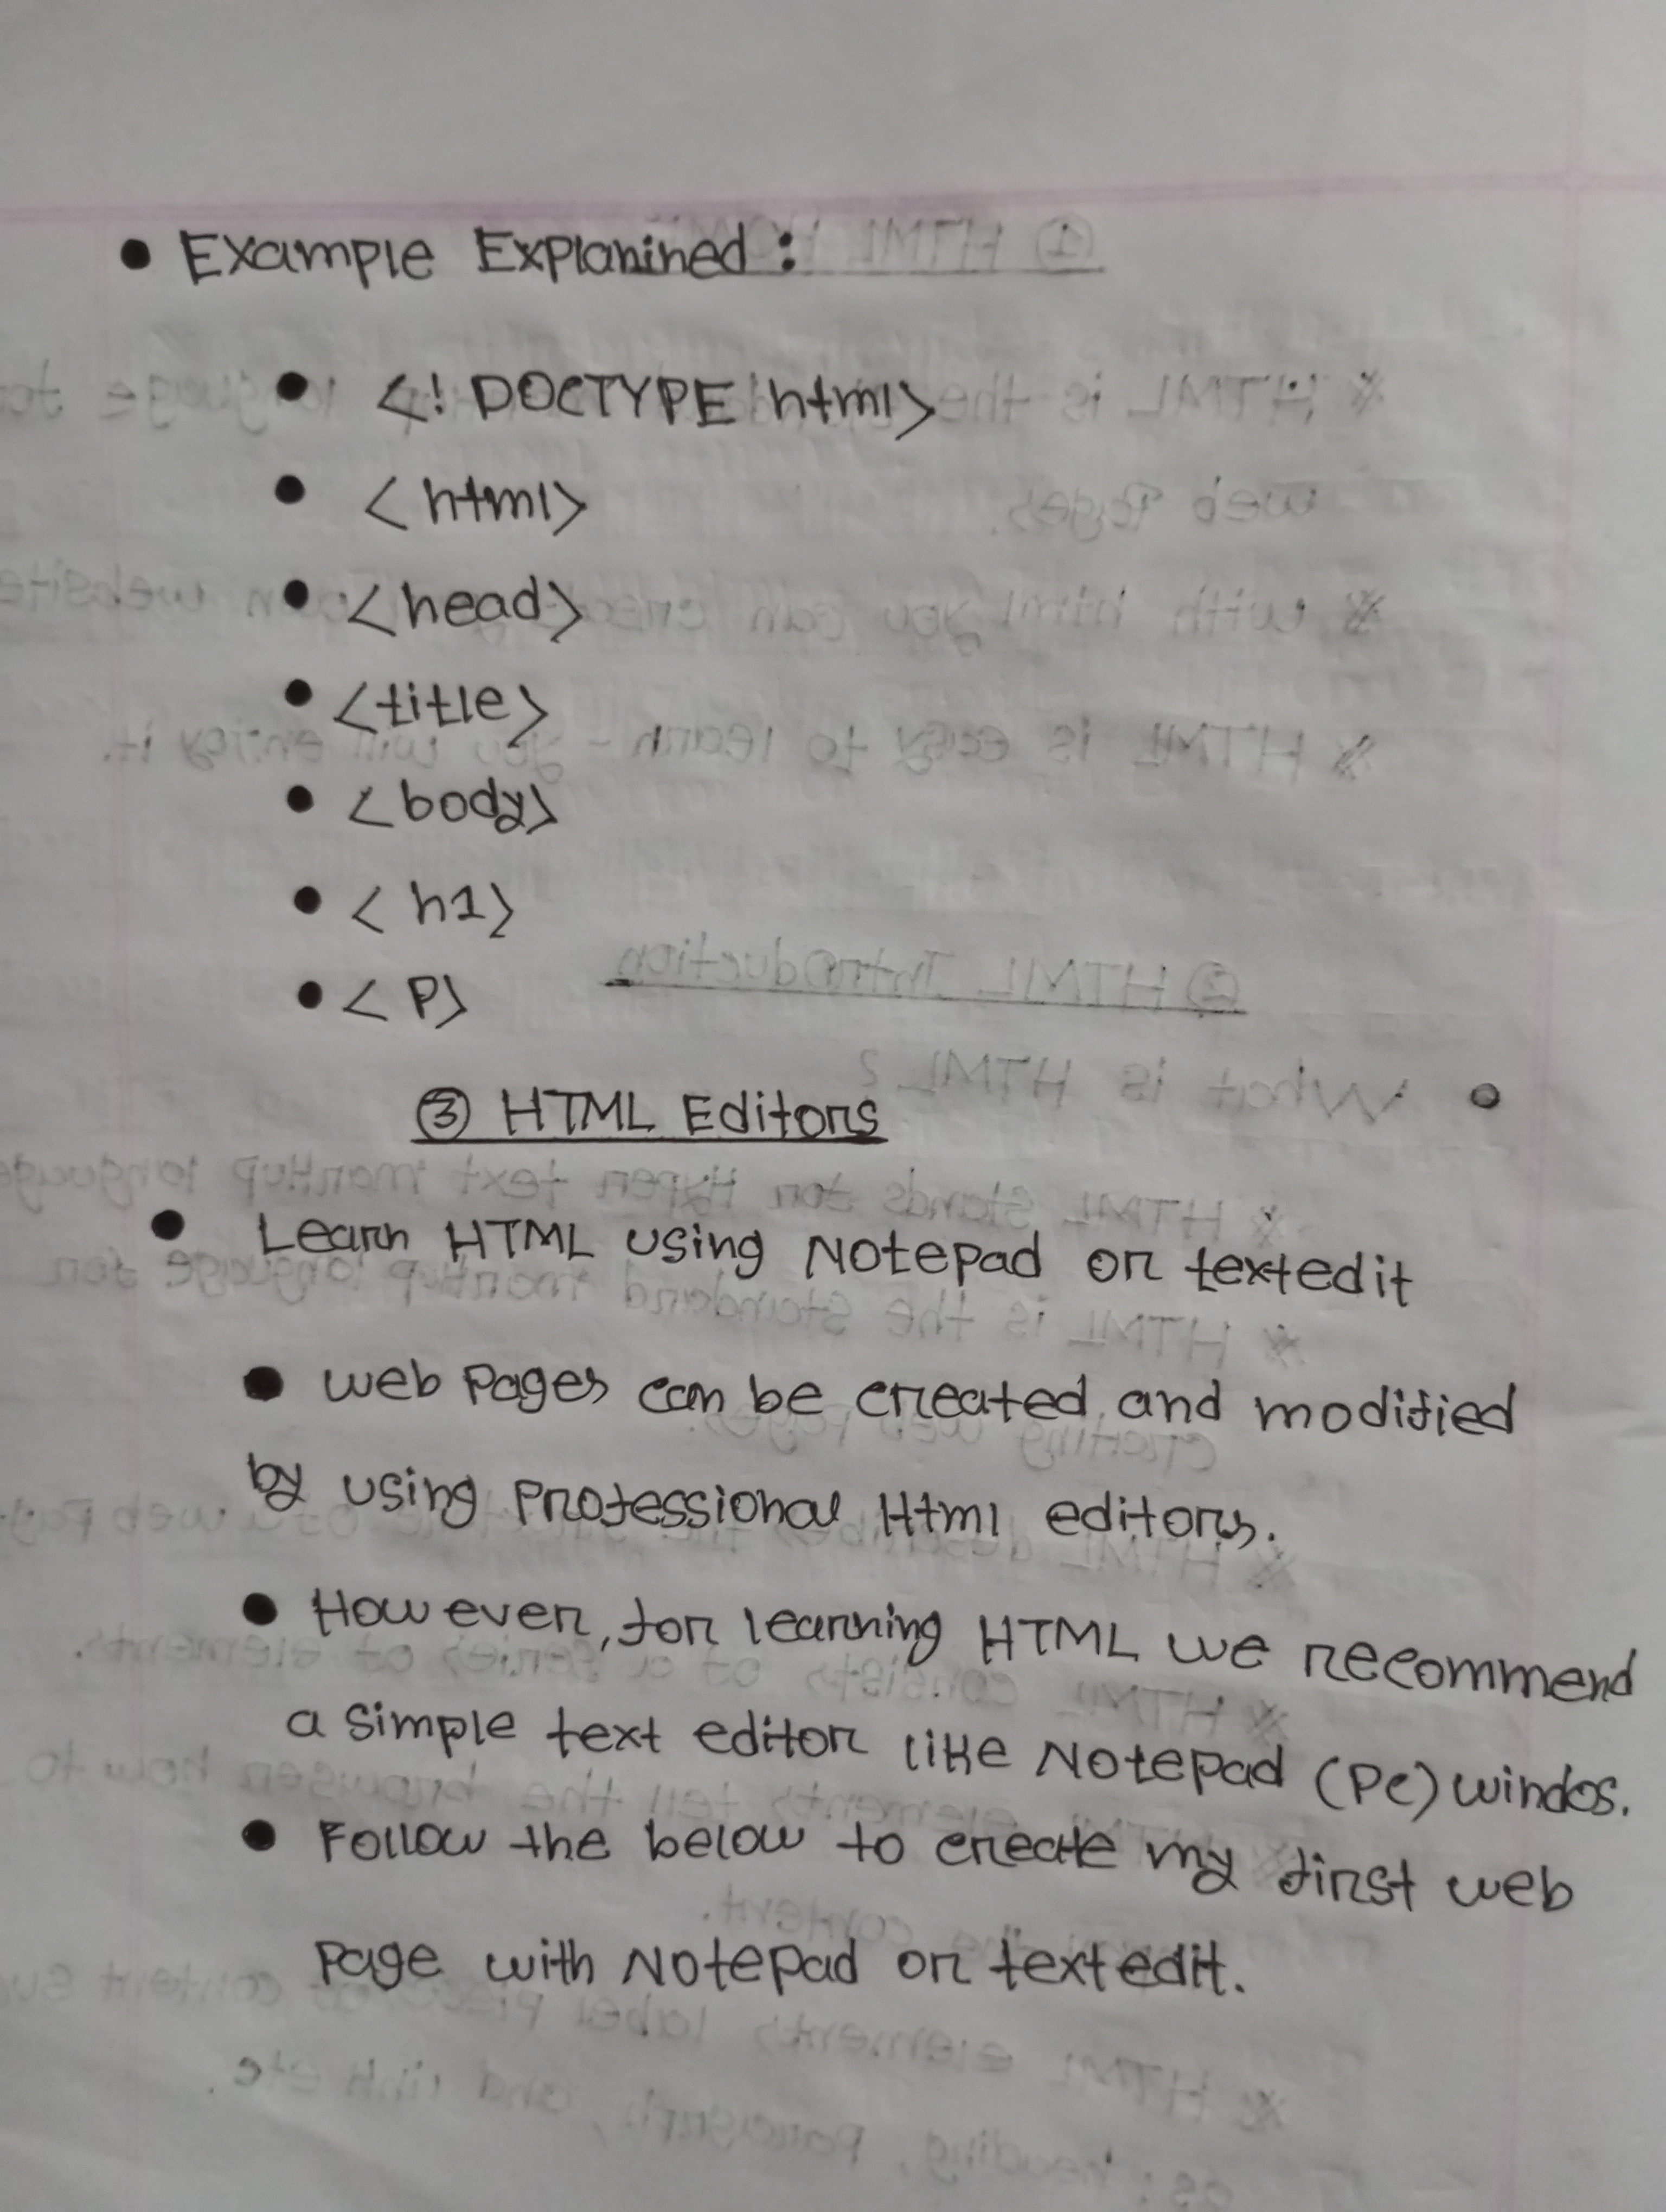 • Example Explanined :
• <! DOCTYPE html>
• <html>
• <head>
• <title>
• <body>
• <h1>
• <P>
③ HTML Editors
• Learn HTML using Notepad or textedit
• web Pages can be created and modified
by using Professional Html editors.
• However, for learning HTML we recommend
a simple text editor like Notepad (Pc) windos.
• Follow the below to create my first web
Page with Notepad or text edit.